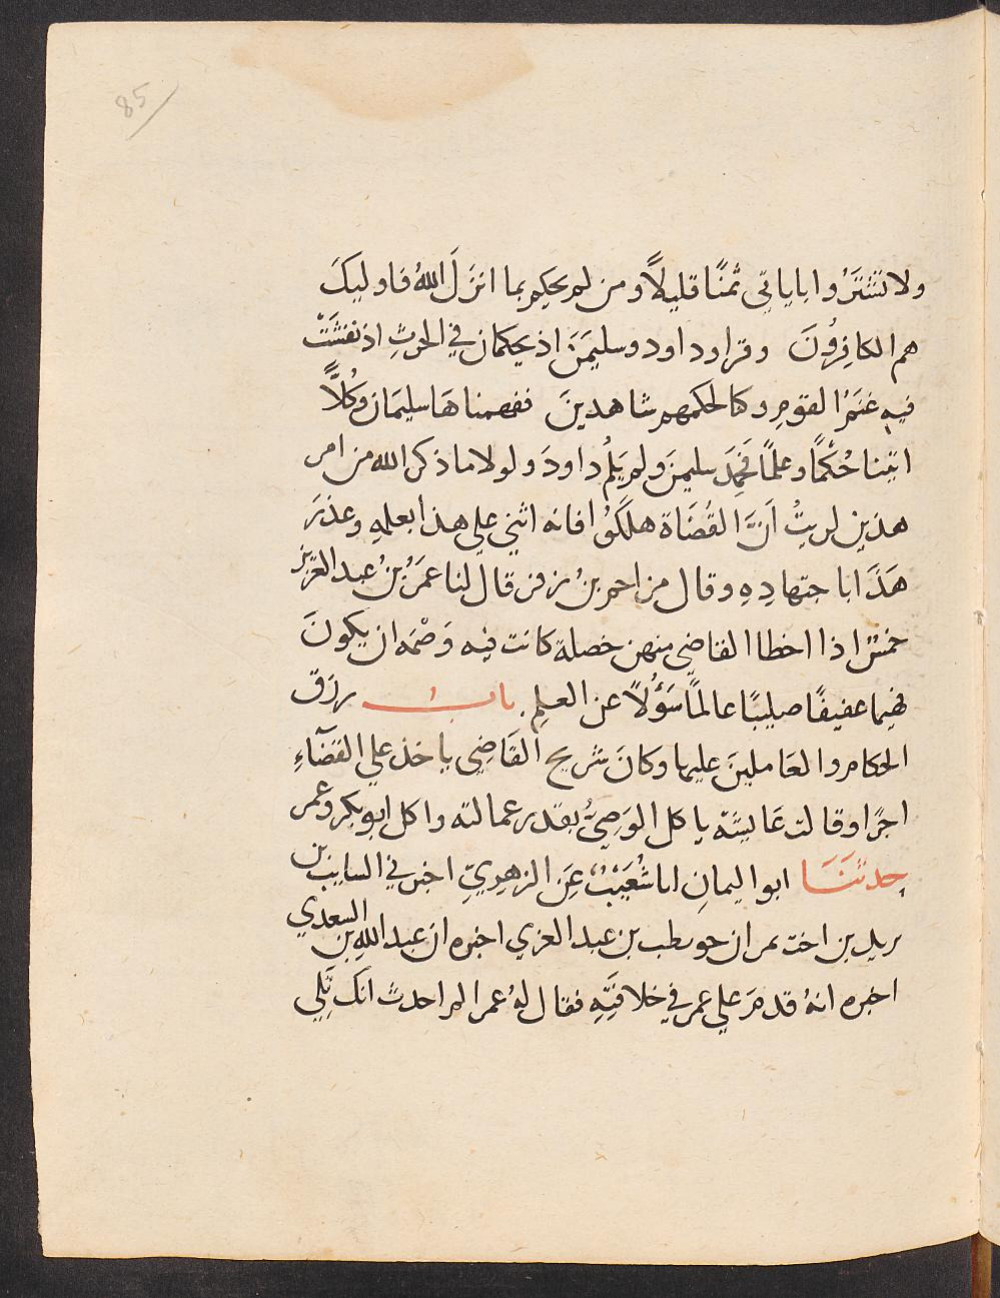 85
ولا تشتَرُوا باياتي ثمنًا قليلاً ومن لم يحكم بما انزَلَ اللهُ فاوليكَ
هم الكافِرُونَ وقرا وداود وسليمَنَ اذ يحكمان في الحرثِ اذ نفشَتْ
فيهِ غنَمُ القومِ وكنا لحكمهم شاهدينَ ففهمناهَا سليمَان وكُلاًّ
اتينا حُكْمًا وعلمًا فحَمِدَ سليمنَ ولم يَلُمْ داودَ ولولا ما ذكر الله من امر
هذين لريتُ اَنَّ القُضَاة هلَكَوُا فانه اثني علي هذا بعلمهِ وعذرَ
هَذَا باجتهادِهِ وقال مزاحم بنُ زفر قال لنا عمَرُ بنُ عبد العزيز
خمسٌ اذا اخطا القاضي منهن خصلة كانت فيه وَصْمَه ان يكونَ
فهيما عفيفًا صليبًا عالمًا سَؤُلاً عن العلمِ باب رزق
الحكام والعَاملينَ عليها وكانَ شريح القَاضِي ياخذ علي القضَآءِ
اجرًا وقالت عَايشَة ياكل الوَصِيُّ بقدر عمالته واكل ابو بكر وعمر
حدثنَا ابو اليمانِ انا شُعَيْبٌ عَنِ الزهرِيِّ اخبرني السايب بن
يزيد بن اخت نمر ان حويطب بن عبد العزي اخبره ان عبد اللهِ بن السعدي
اخبره انهُ قدمَ علي عمر في خلافتِهِ فقال لهُ عمر الم احدث انك تَلِي